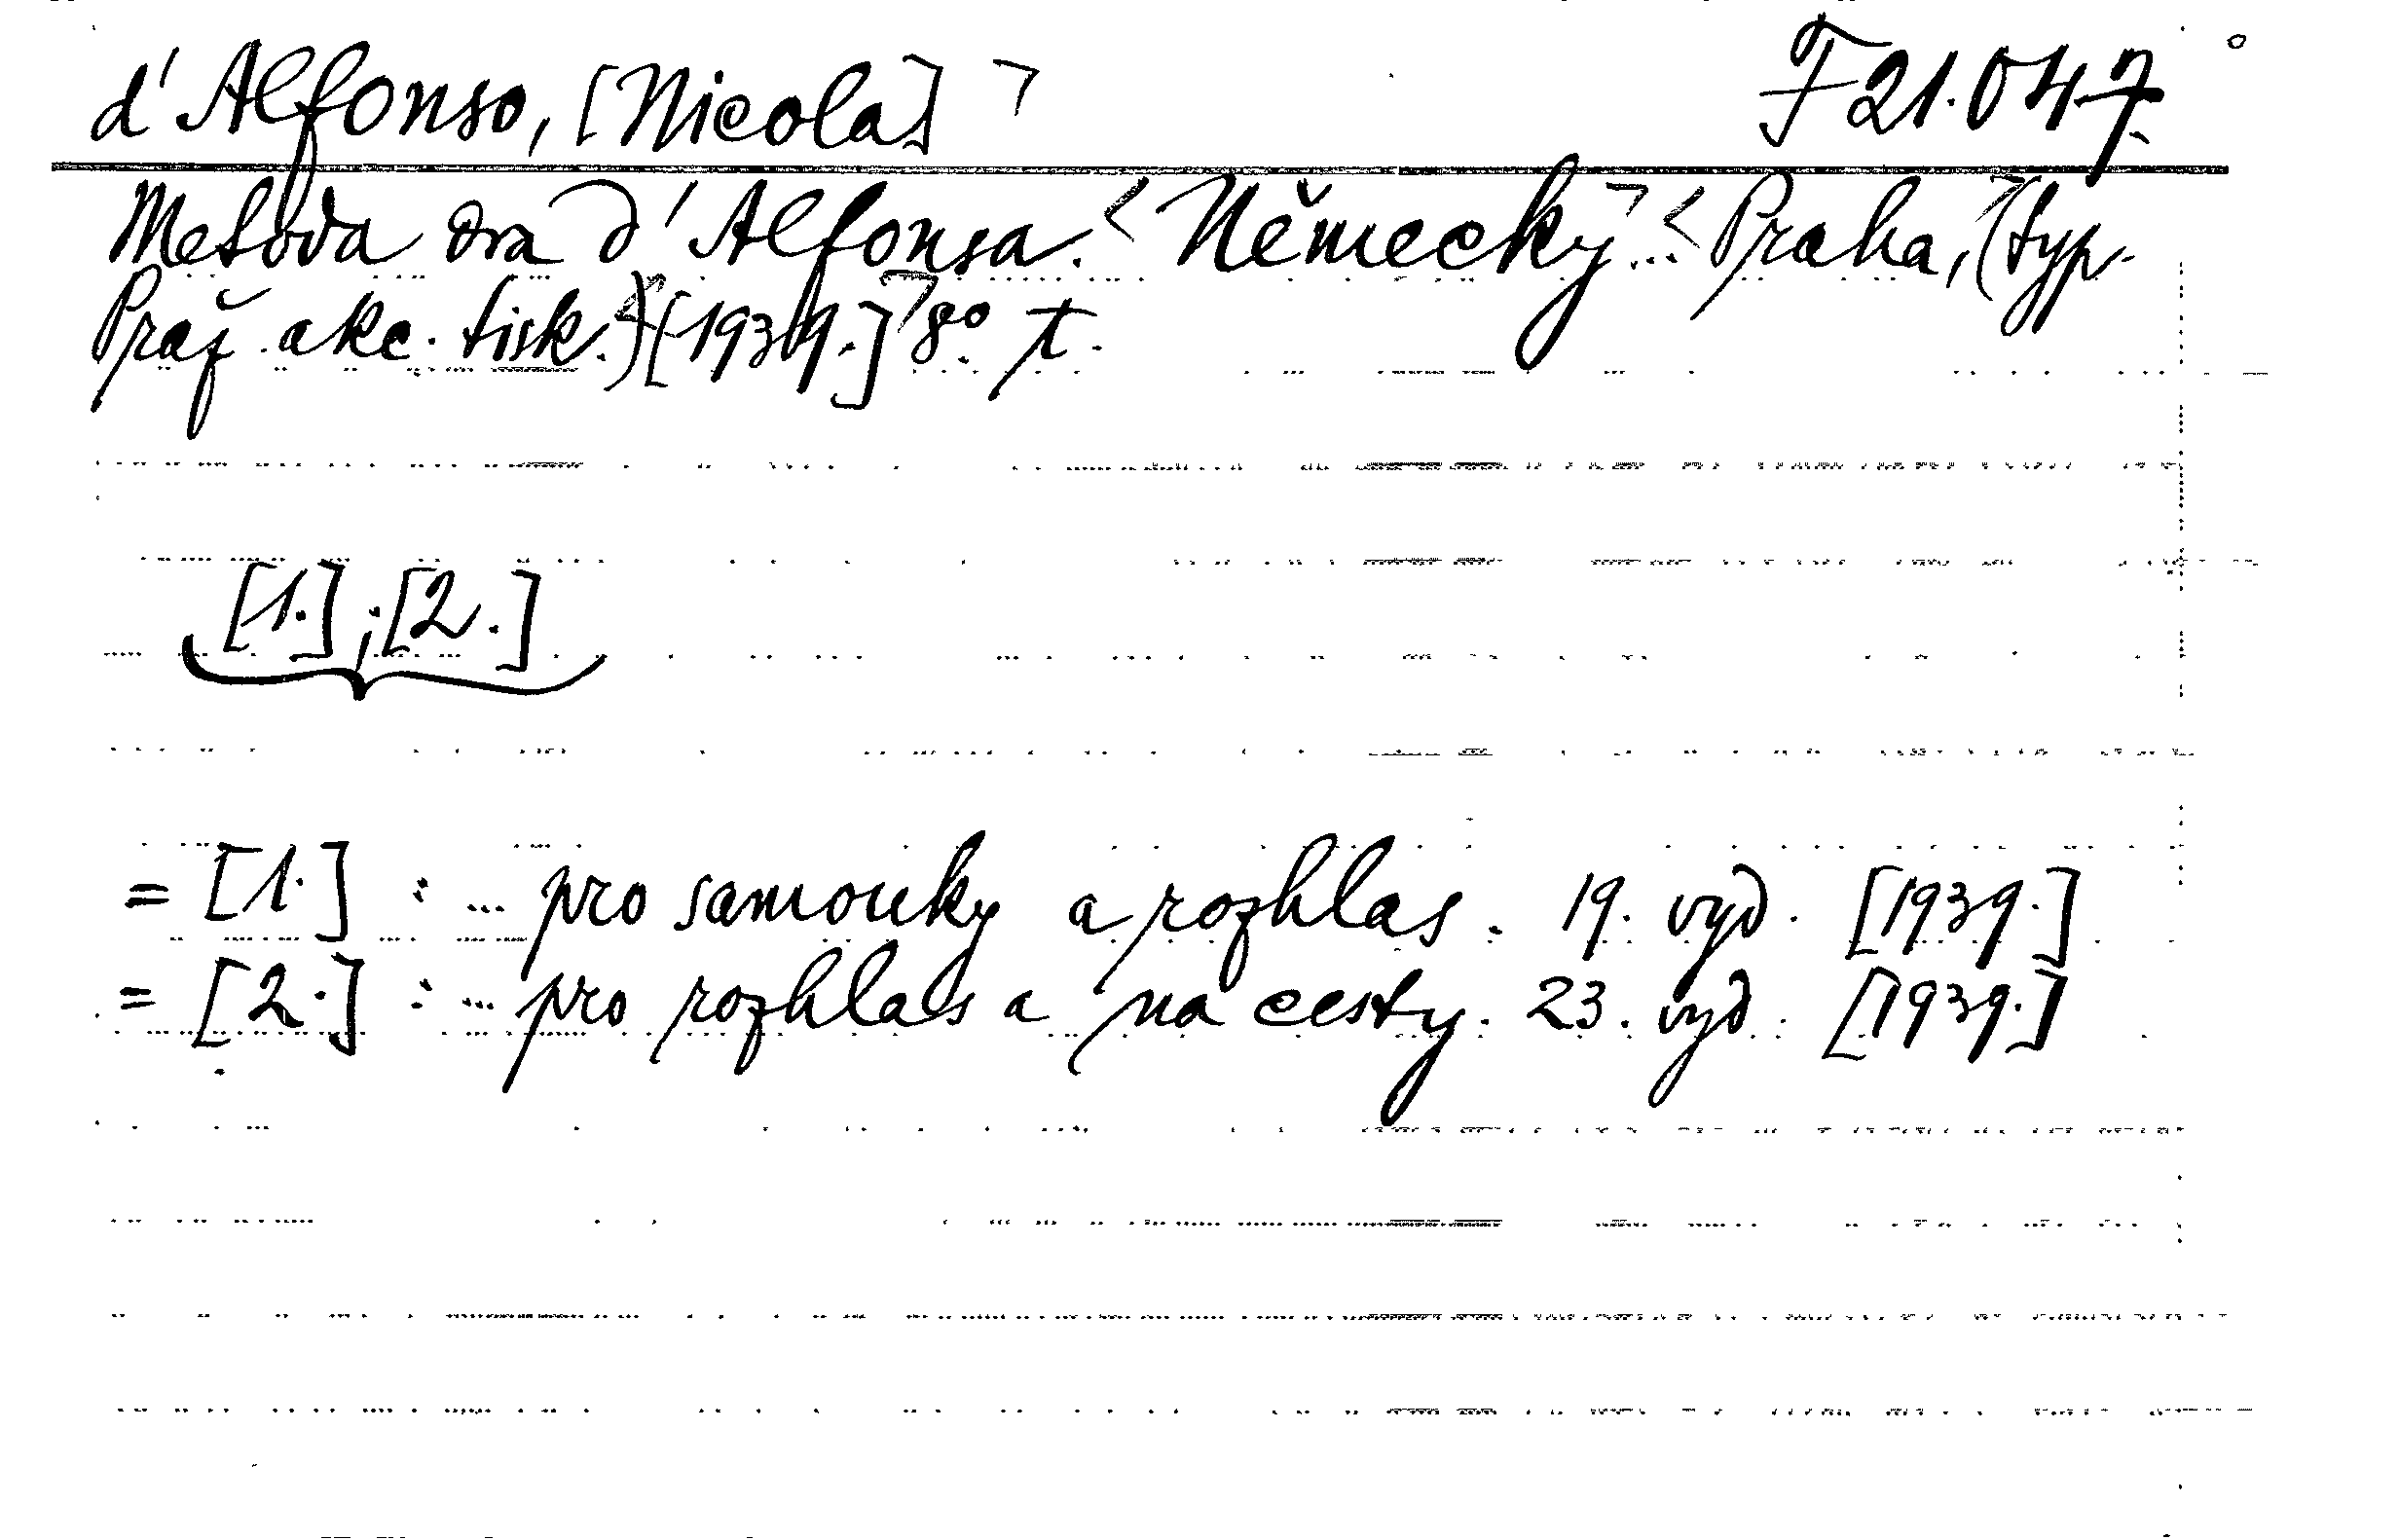 d'Alfonso, [Nicola] F 21.047
Metoda dra d'Alfonsa. Německy... Praha, (typ.
Praž. akc. tisk.) [1939.] 8° t.
[1.]; [2.]
= [1.] : ... pro samouky a rozhlas. 19. vyd. [1939.]
= [2.] : ... pro rozhlas a na cesty. 23. vyd. [1939.]